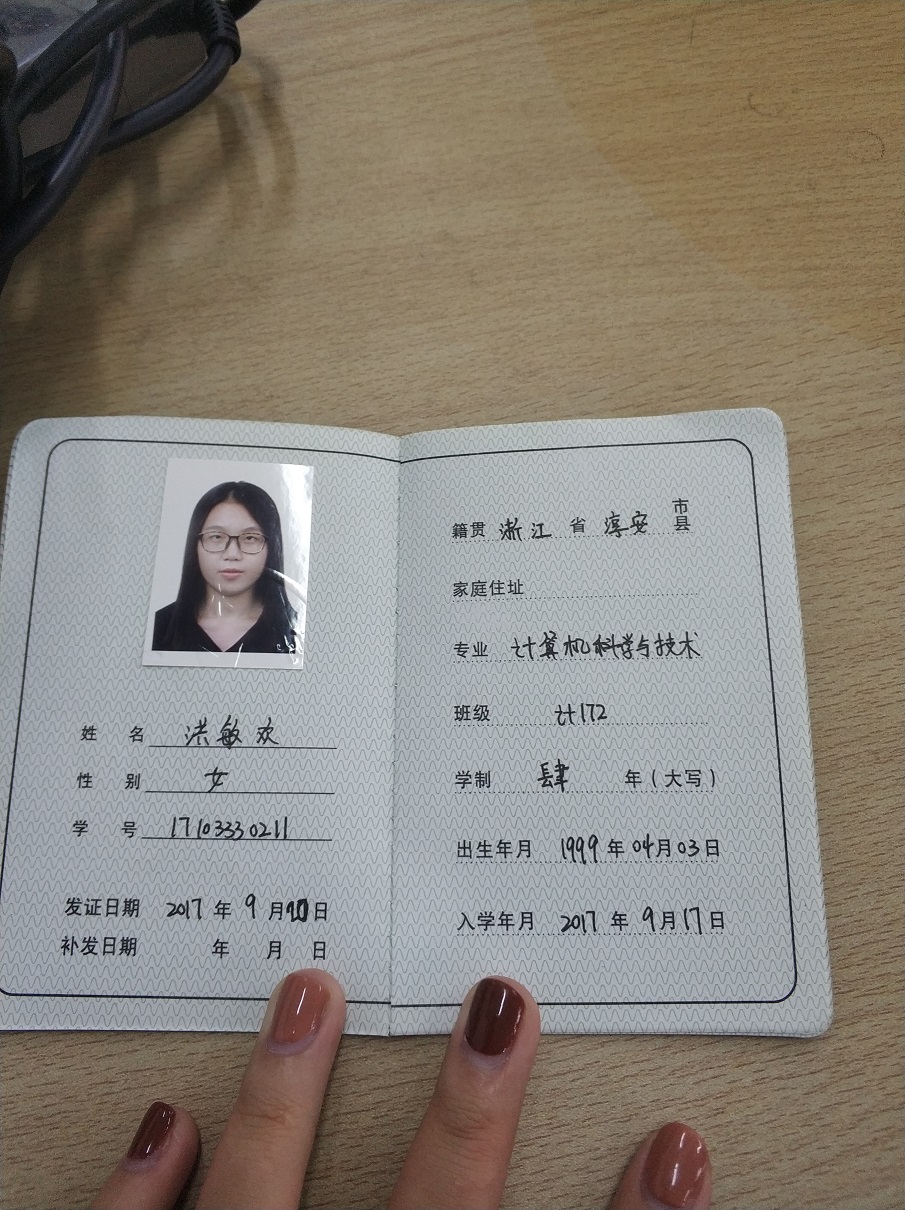 姓 名 洪敏欢
性 别 女
学 号 17103330211
发证日期 2017 年 9 月 日
补发日期 年 月 日
籍贯 浙江 省 淳安 市县
家庭住址
专业 计算机科学与技术
班级 计172
学制 肆 年（大写）
出生年月 1999 年 04 月 03 日
入学年月 2017 年 9 月 17 日